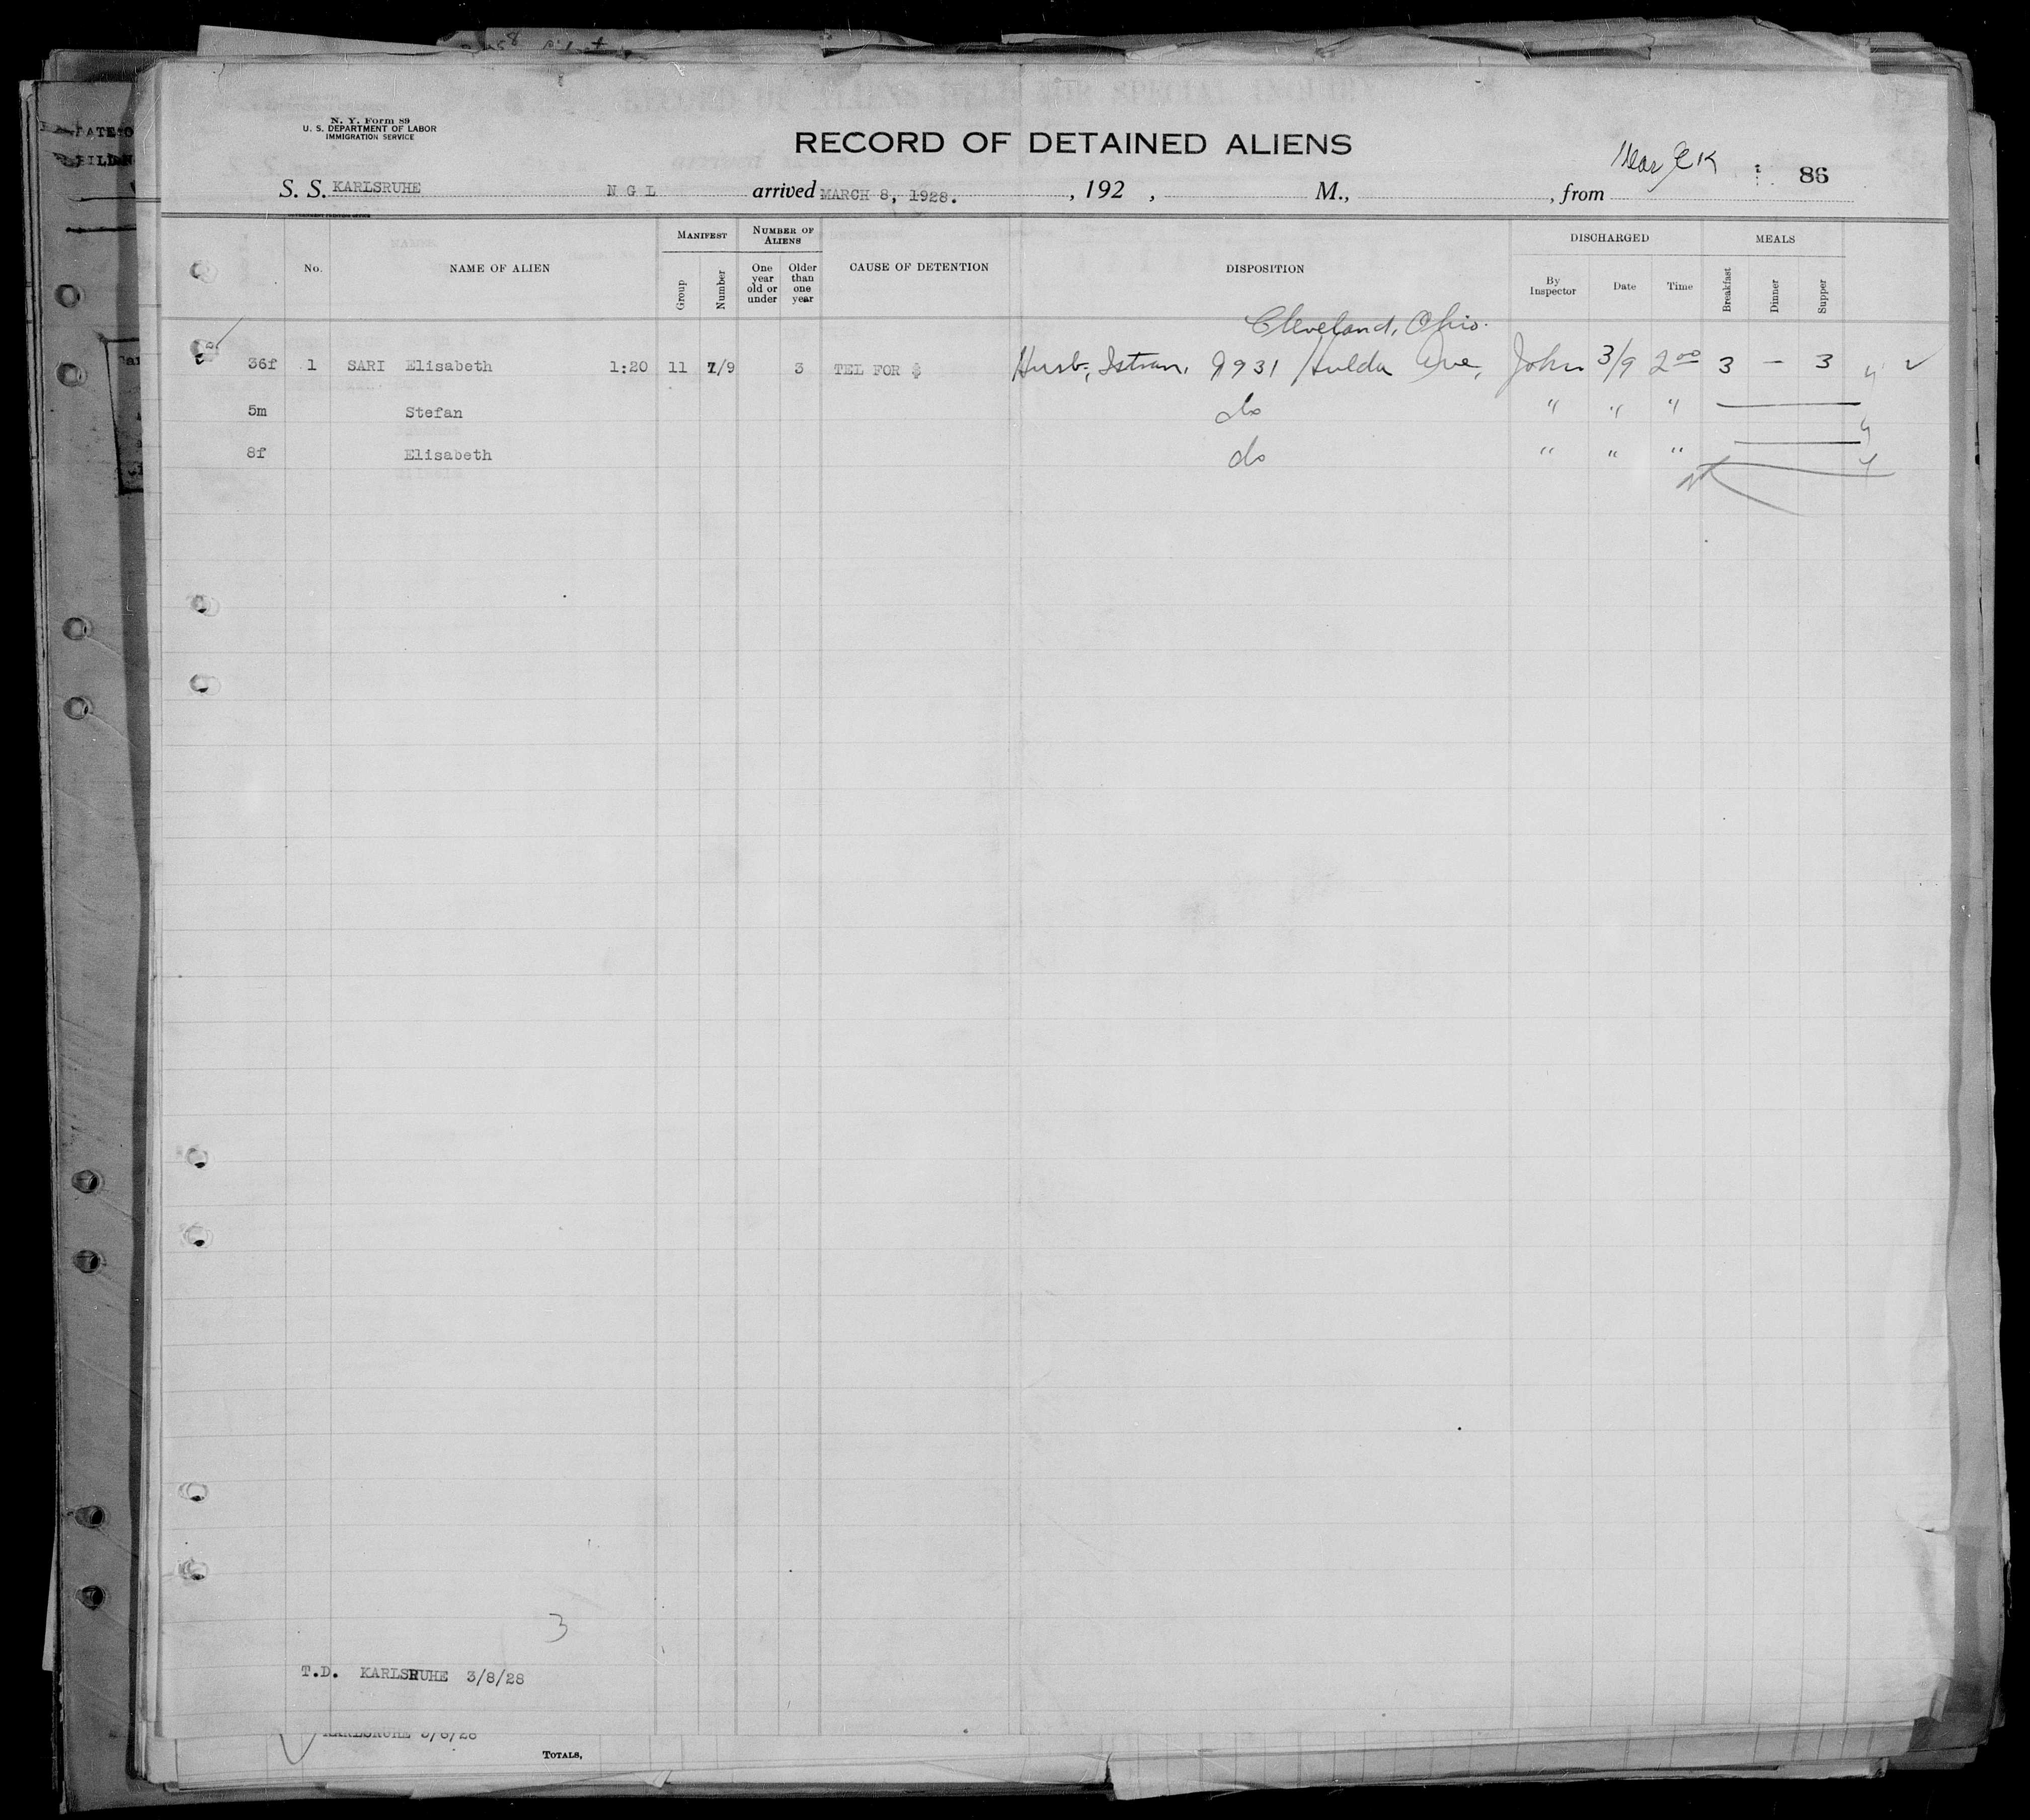 N. Y. Form 89
U. S. DEPARTMENT OF LABOR
IMMIGRATION SERVICE
RECORD OF DETAINED ALIENS
86
S. S. KARLSRUHE N G L arrived MARCH 8, 1928. , 192 , M., , from
GOVERNMENT PRINTING OFFICE
No. NAME OF ALIEN MANIFEST Group Number NUMBER OF ALIENS One year old or under Older than one year CAUSE OF DETENTION DISPOSITION DISCHARGED By Inspector Date Time MEALS Breakfast Dinner Supper
Cleveland, Ohio.
36f 1 SARI Elisabeth 1:20 11 7/9 3 TEL FOR $ Husb, Istvan, 9931 Hulda Ave, John 3/9 2 00 3 — 3 ✓
5m Stefan do " " "
8f Elisabeth do " " "
3
T.D. KARLSRUHE 3/8/28
KARLSRUHE 3/8/28
TOTALS,